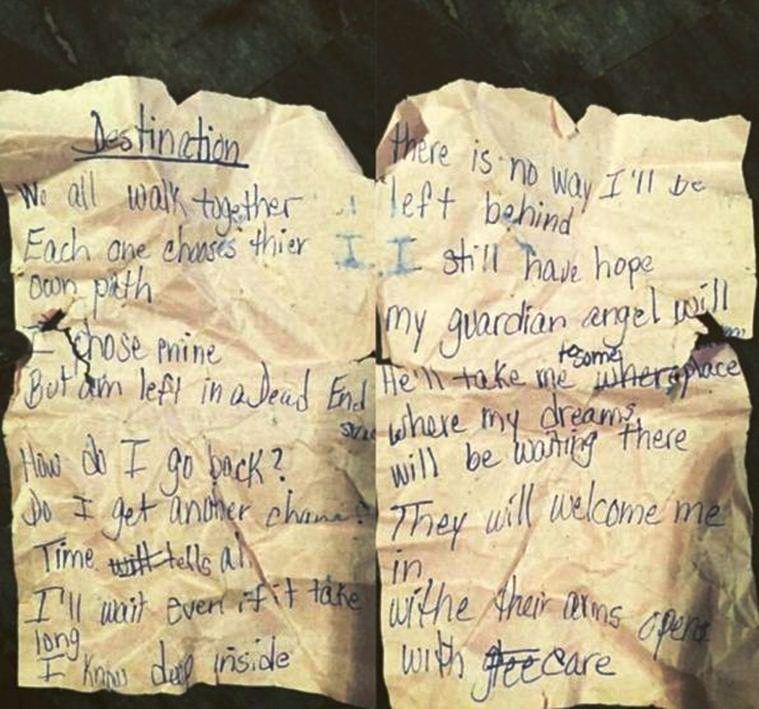 Destination
We all walk together
Each one chooses thier
own path
I chose mine
But am left in a Dead End
How do I go back?
Do I get another chance?
Time will tells all
I'll wait even if it take
long
I know deep inside
there is no way I'll be
left behind
I still have hope
my guardian angel will
He'll take me to some where place
where my dreams
will be waiting there
They will welcome me
in
withe their arms open
with care